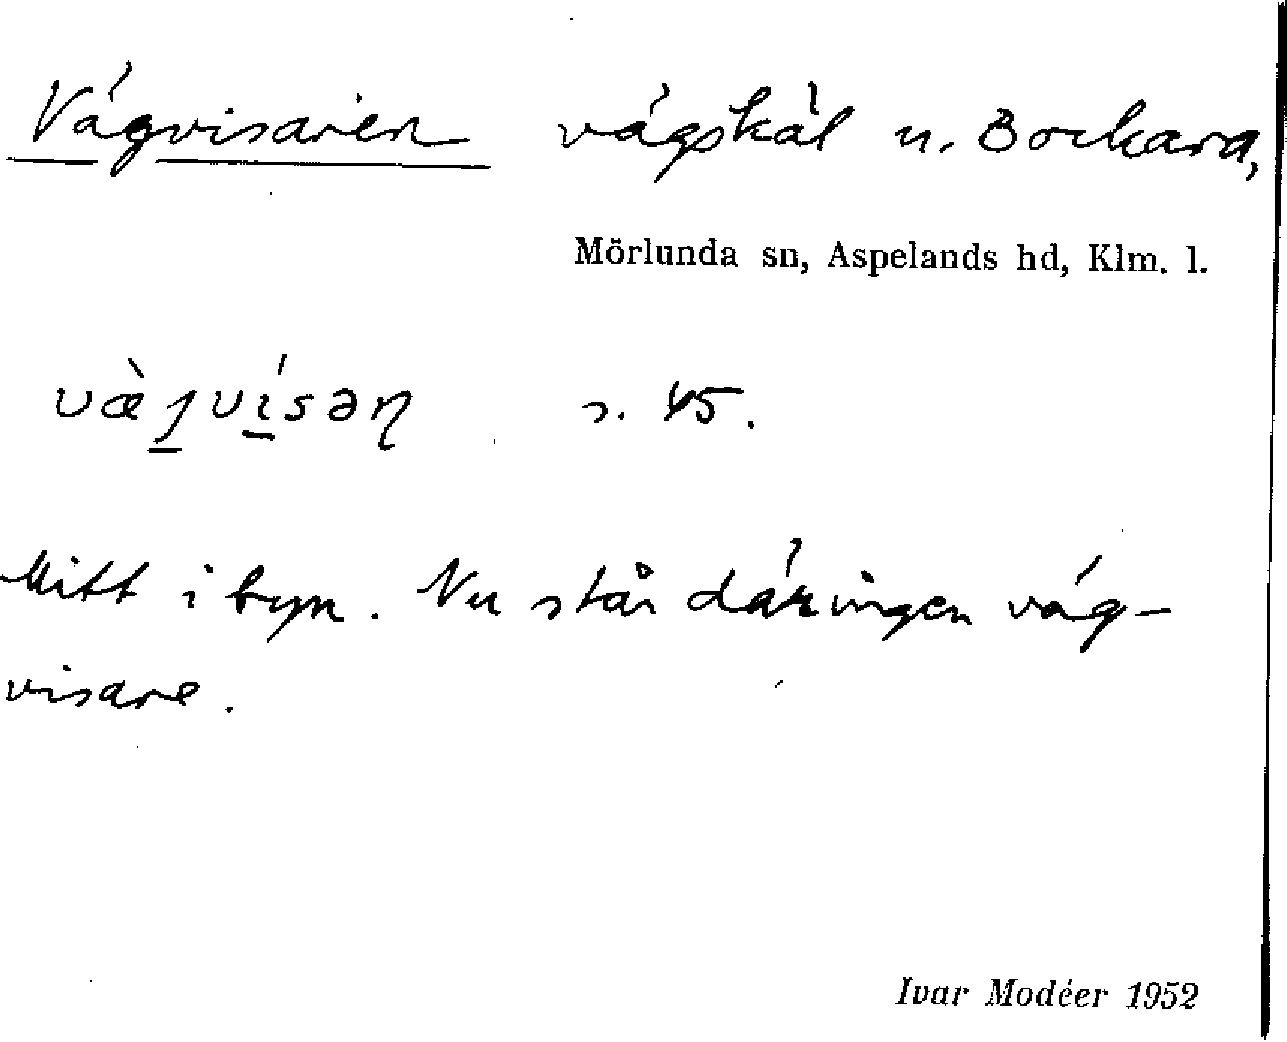 Vägvisaren vägskäl u. Bockara,
Mörlunda sn, Aspelands hd, Klm. l.
s. 45.
Mitt i byn. Nu står där ingen väg-
visare.
Ivar Modéer 1952